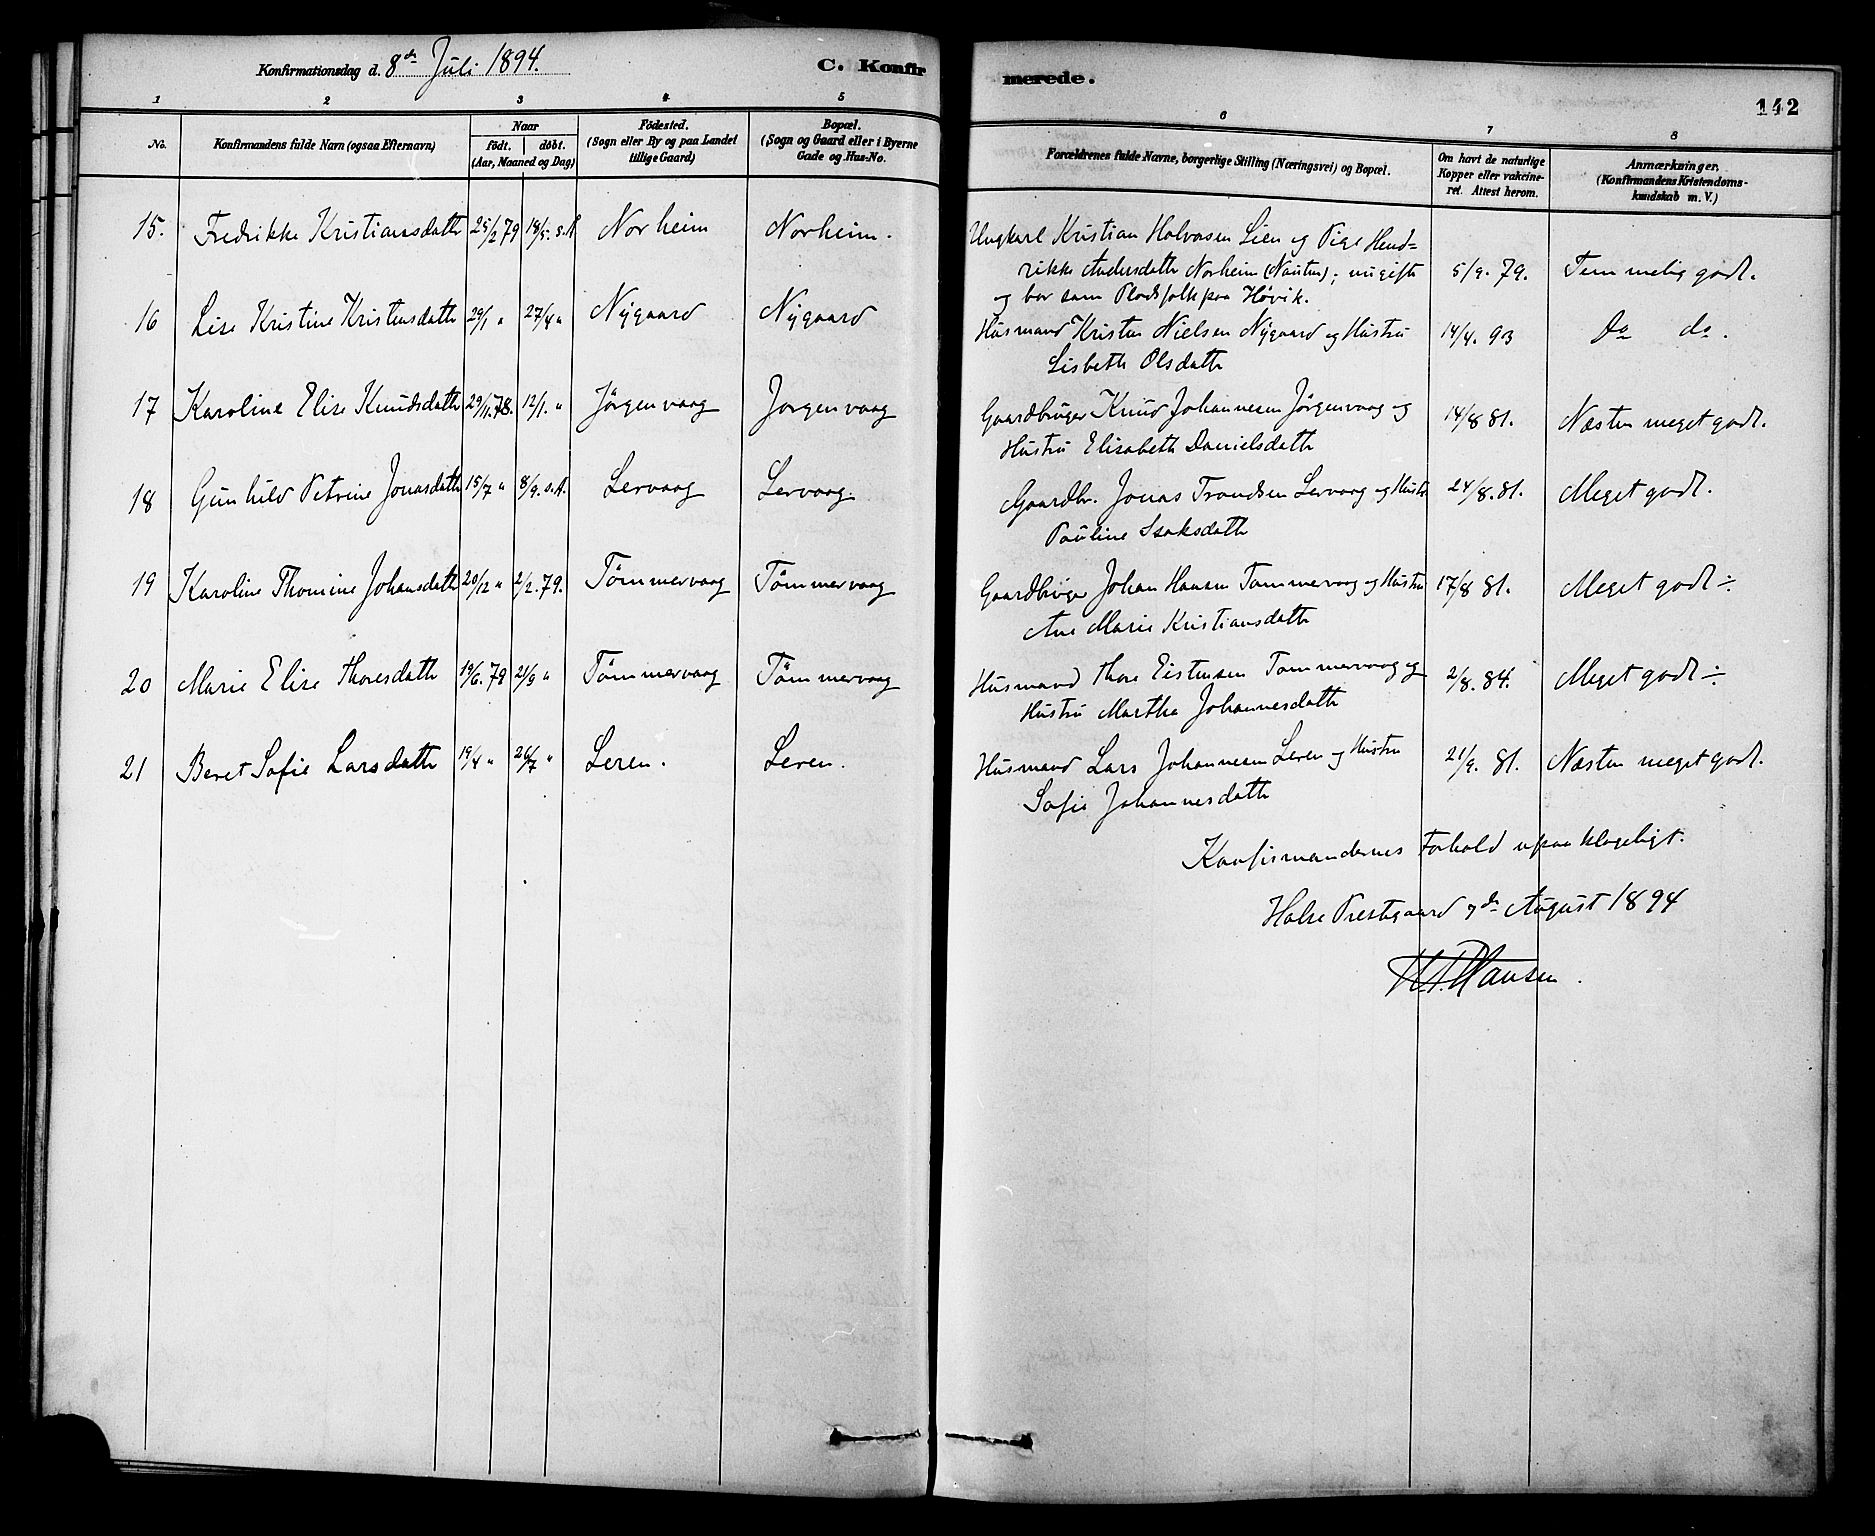 Konfirmationsdag d. 8de Juli 1894. C. Konfirmerede.
142
1 2 3 4 5 6 7 8
No. Konfirmandens fulde Navn (ogsaa Efternavn) Naar født. døbt. (Aar, Maaned og Dag) Fødested. (Sogn eller By og paa Landet tillige Gaard) Bopæl. (Sogn og Gaard eller i Byerne Gade og Hus-No. Forældrenes fulde Navne, borgerlige Stilling (Næringsvei) og Bopæl. Om havt de naturlige Kopper eller vakcineret. Attest herom. Anmærkninger. (Konfirmandens Kristendomskundskab m. V.)
15. Fredrikke Kristiansdatter 25/2 79 18/5. s.A. Norheim Norheim. Ungkarl Kristian Halvorsen Lien og Pige Hend=
rikke Andersdatter Norheim (Nausten); nu gifte 5/9. 79. Temmelig godt.
og bor som Pladsfolk paa Høvik.
16 Lise Kristine Kristensdatter 29/1 " 27/4 " Nygaard Nygaard Husmand Kristen Nielsen Nygaard og Hustru 14/4. 93 Do do.
Lisbeth Olsdatter
17 Karoline Elise Knudsdatter 29/11.78. 12/1. " Jörgenvaag Jorgenvaag Gaardbruger Knud Johannesen Jörgenvaag og 14/8 81. Næsten meget godt.
Hustru Elisabeth Danielsdatter
18 Gunhild Petrine Jonasdatter 15/7 " 8/9. s.A. Lervaag Lervaag. Gaardbr. Jonas Trondsen Lervaag og Hustr 24/8. 81. Meget godt.
Pauline Isaksdatter
19 Karoline Thomine Johansdatter 20/12 " 2/2. 79. Tömmervaag Tömmervaag Gaardbruger Johan Hansen Tømmervaag og Hustru 17/8 81. Meget godt ÷
Ane Marie Kristiansdatter
20 Marie Elise Thoresdatter 19/6. 78 21/9 " Tömmervaag Tömmervaag Husmand Thore Eistensen Tømmervaag og 2/8. 84. Meget godt ÷
Hustru Martha Johannesdatter
21 Beret Sofie Larsdatter 19/4 " 26/7 " Leren. Leren. Husmand Lars Johannesen Leren og Hustru 21/9. 81. Næsten meget godt.
Sofie Johannesdatter
Konfirmandernes Forhold upaaklageligt.
Halse Prestegaard 7de August 1894
Hansen.